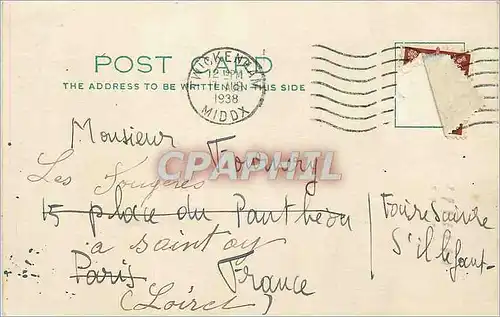 POST CARD
THE ADDRESS TO BE WRITTEN ON THIS SIDE
TWICKENHAM
12 15 PM
1938
MIDDX
CPAPHIL
Monsieur
Les Fougères
15 place du Panthéon
à Saint ay
Paris France
(Loiret)
Faire suivre
S'il le faut